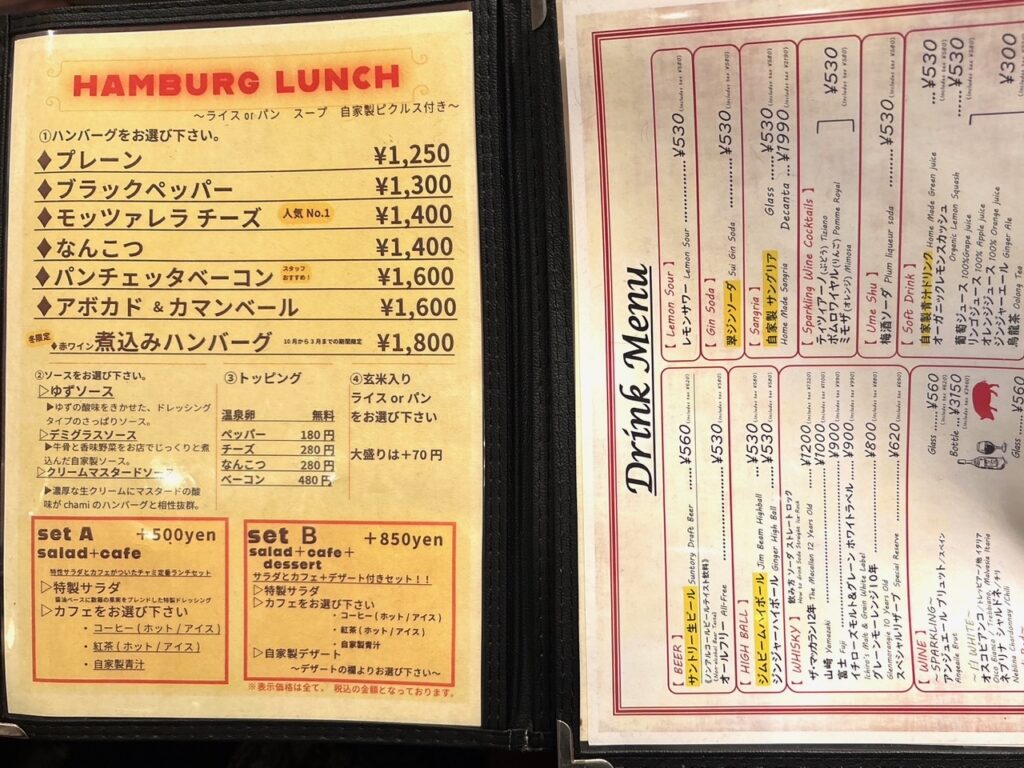 HAMBURG LUNCH
～ライス or パン　スープ　自家製ピクルス付き～
①ハンバーグをお選び下さい。
♦プレーン ¥1,250
♦ブラックペッパー ¥1,300
♦モッツァレラ チーズ 人気 No.1 ¥1,400
♦なんこつ ¥1,400
♦パンチェッタベーコン スタッフおすすめ！ ¥1,600
♦アボカド & カマンベール ¥1,600
冬限定 ♦赤ワイン煮込みハンバーグ 10月から3月までの期間限定 ¥1,800
②ソースをお選び下さい。
▷ゆずソース
▶ゆずの酸味をきかせた、ドレッシング
タイプのさっぱりソース。
▷デミグラスソース
▶牛骨と香味野菜をお店でじっくりと煮
込んだ自家製ソース。
▷クリームマスタードソース
▶濃厚な生クリームにマスタードの酸
味が chami のハンバーグと相性抜群。
③トッピング
温泉卵 無料
ペッパー 180円
チーズ 280円
なんこつ 280円
ベーコン 480円
④玄米入り
ライス or パン
をお選び下さい
大盛りは＋70 円
set A ＋500yen
salad+cafe
特性サラダとカフェがついたチャミ定番ランチセット
▷特製サラダ
醤油ベースに数種の果実をブレンドした特製ドレッシング
▷カフェをお選び下さい
・コーヒー ( ホット / アイス )
・紅茶 ( ホット / アイス )
・自家製青汁
set B ＋850yen
salad+cafe+
dessert
サラダとカフェ＋デザート付きセット！！
▷特製サラダ
▷カフェをお選び下さい
・コーヒー ( ホット / アイス )
・紅茶 ( ホット / アイス )
・自家製青汁
▷自家製デザート
～デザートの欄よりお選び下さい～
※表示価格は全て、税込の金額となっております。
Drink Menu
[ BEER ]
サントリー生ビール Suntory Draft Beer ¥560 (Includes tax ¥620)
《ノンアルコールビールテイスト飲料》
(Non-alcohol Beer Taste)
オールフリー All-Free ¥530
[ HIGH BALL ]
ジムビームハイボール Jim Beam Highball ¥530
ジンジャーハイボール Ginger High Ball ¥530
[ WHISKY ]
飲み方 ソーダ ストレート ロック
How to drink Soda Straight Ice Rock
ザ・マッカラン12年 The Macallan 12 Years Old ¥1200 (Includes tax ¥1320)
山崎 Yamazaki ¥1000 (Includes tax ¥1100)
富士 Fuji ¥900 (Includes tax ¥990)
イチローズモルト&グレーン ホワイトラベル ¥900 (Includes tax ¥990)
Ichiro's Malt & Grain White Label
グレンモーレンジィ10年 ¥800 (Includes tax ¥880)
Glenmorangie 10 Years Old
スペシャルリザーブ Special Reserve ¥620
[ WINE ]
～SPARKLING～
アンジュエール ブリュット／スペイン Glass ¥560 (Includes tax ¥620)
Angeaile Brut Bottle ¥3150
～白WHITE～
オスコビアンコ／トレッビアーノ他 イタリア
Osco Bianco / Trebbiano, Malvasia Italia
ネブリナ シャルドネ／チリ
Neblina Chardonnay /Chili
Glass ¥560
[ Lemon Sour ]
レモンサワー Lemon Sour ¥530 (Includes tax ¥580)
[ Gin Soda ]
翠ジンソーダ Sui Gin Soda ¥530 (Includes tax ¥580)
[ Sangria ]
自家製 サングリア Glass ¥530 (Includes tax ¥580)
Home Made Sangria Decanta ¥1990 (Includes tax ¥2190)
[ Sparkling Wine Cocktails ]
ティツィアーノ(ぶどう) Tiziano
ポムロワイヤル(りんご) Pomme Royal
ミモザ(オレンジ) Mimosa
¥530 (Includes tax ¥580)
[ Ume Shu ]
梅酒ソーダ Plum liqueur soda ¥530 (Includes tax ¥580)
[ Soft Drink ]
自家製青汁ドリンク Home Made Green juice ¥530 (Includes tax ¥580)
オーガニックレモンスカッシュ ¥530 (Includes tax ¥580)
Organic Lemon Squash
葡萄ジュース 100%Grape juice
リンゴジュース 100% Apple juice
オレンジジュース 100% Orange juice
ジンジャーエール Ginger Ale
烏龍茶 Oolong Tea
¥300